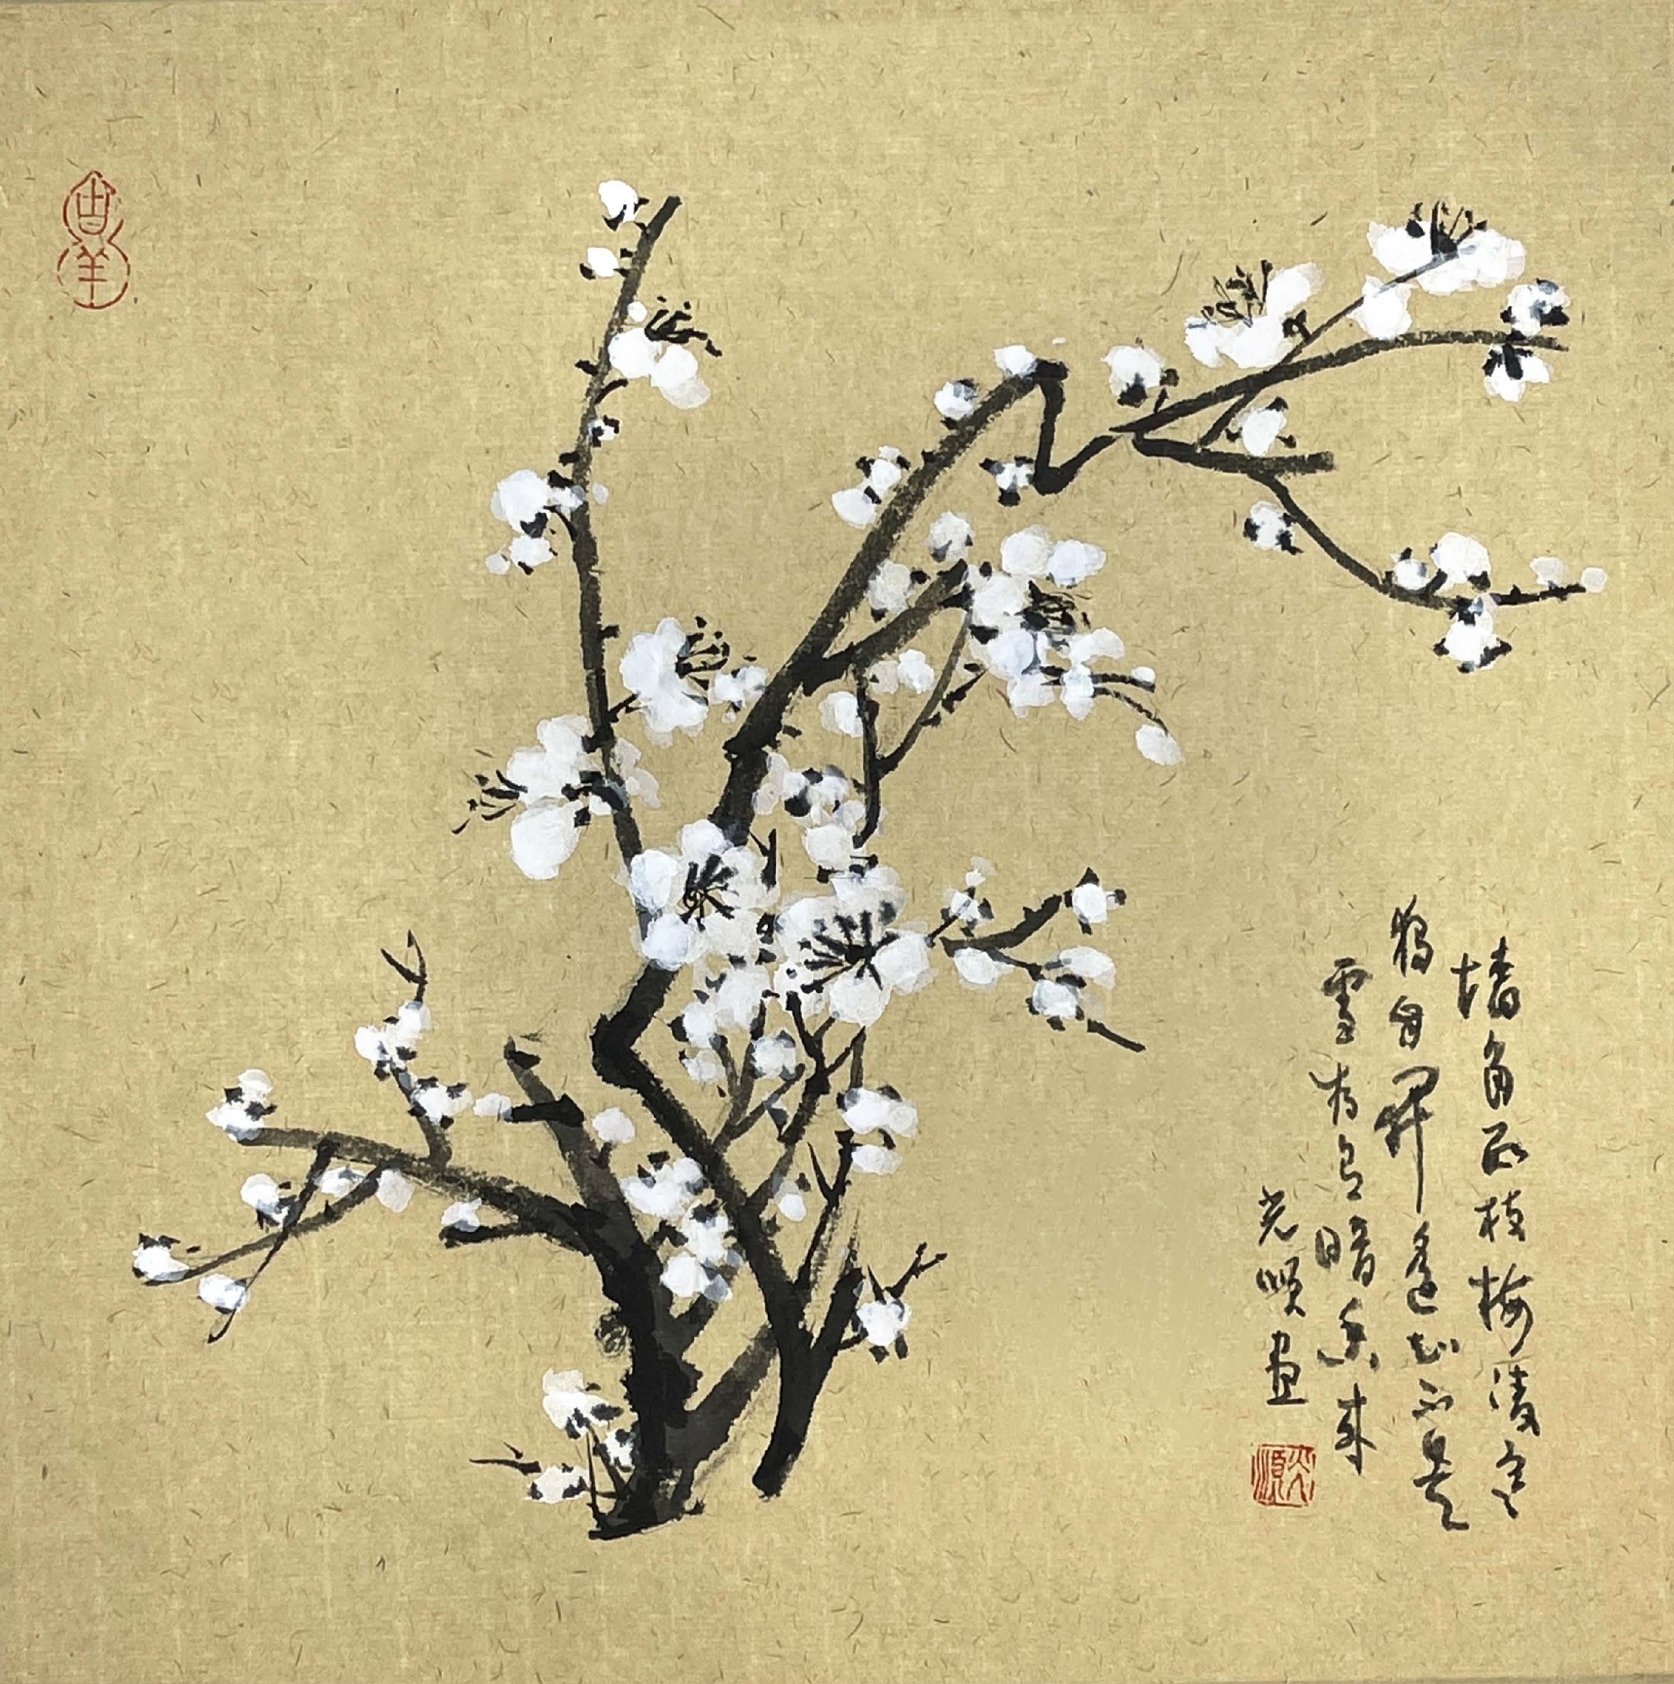 墙角数枝梅凌寒
独自开遥知不是
雪为有暗香来
光顺画
光順